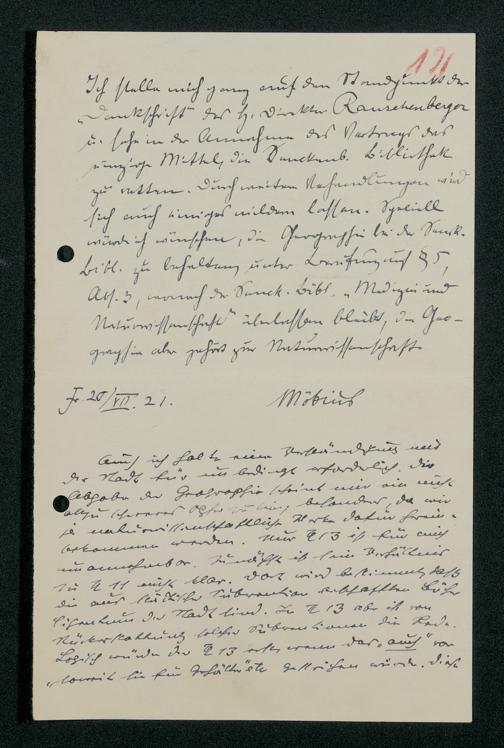 121
Ich stelle mich ganz auf den Standpunkt der
Denkschrift des H. Direktor Rauschenberger
u. sehe in der Annahme des Vertrags das
einzige Mittel, die Senckenb. Bibliothek
zu retten. Durch weitere Verhandlungen wird
sich auch einiges mildern lassen. Speziell
würde ich wünschen, die Geographie bei der Senck.
Bibl. zu behalten unter Berufung auf § 5,
Abs. 3, wonach der Senck. Bibl. "Medizin und
Naturwissenschaft" überlassen bleibt, die Geo-
graphie aber gehört zur Naturwissenschaft.
Fr. 20/VII. 21. Möbius
Auch ich halte eine Verständigung mit
der Stadt für unbedingt erforderlich. Die
Abgabe der Geographie scheint mir ein nicht
allzu schweres Opfer zu sein, besonders, da wir
ja naturwissenschaftliche Werke dafür herein-
bekommen werden. Nur § 13 ist für mich
unannehmbar. Zunächst ist sein Verhältnis
zu § 11 nicht klar. Dort wird bestimmt, daß
die aus städtischer Subvention beschafften Bücher
Eigentum der Stadt sind. In § 13 aber ist von
Rückerstattung solcher Subventionen die Rede.
Logisch würde der § 13 erst, wenn das "auch" vor
"soweit sie für Gehälter" gestrichen würde. Diese